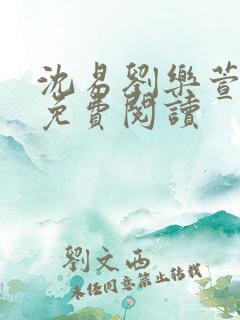 沈易劉樂萱
免費閱讀
劉文西
未经同意禁止转载